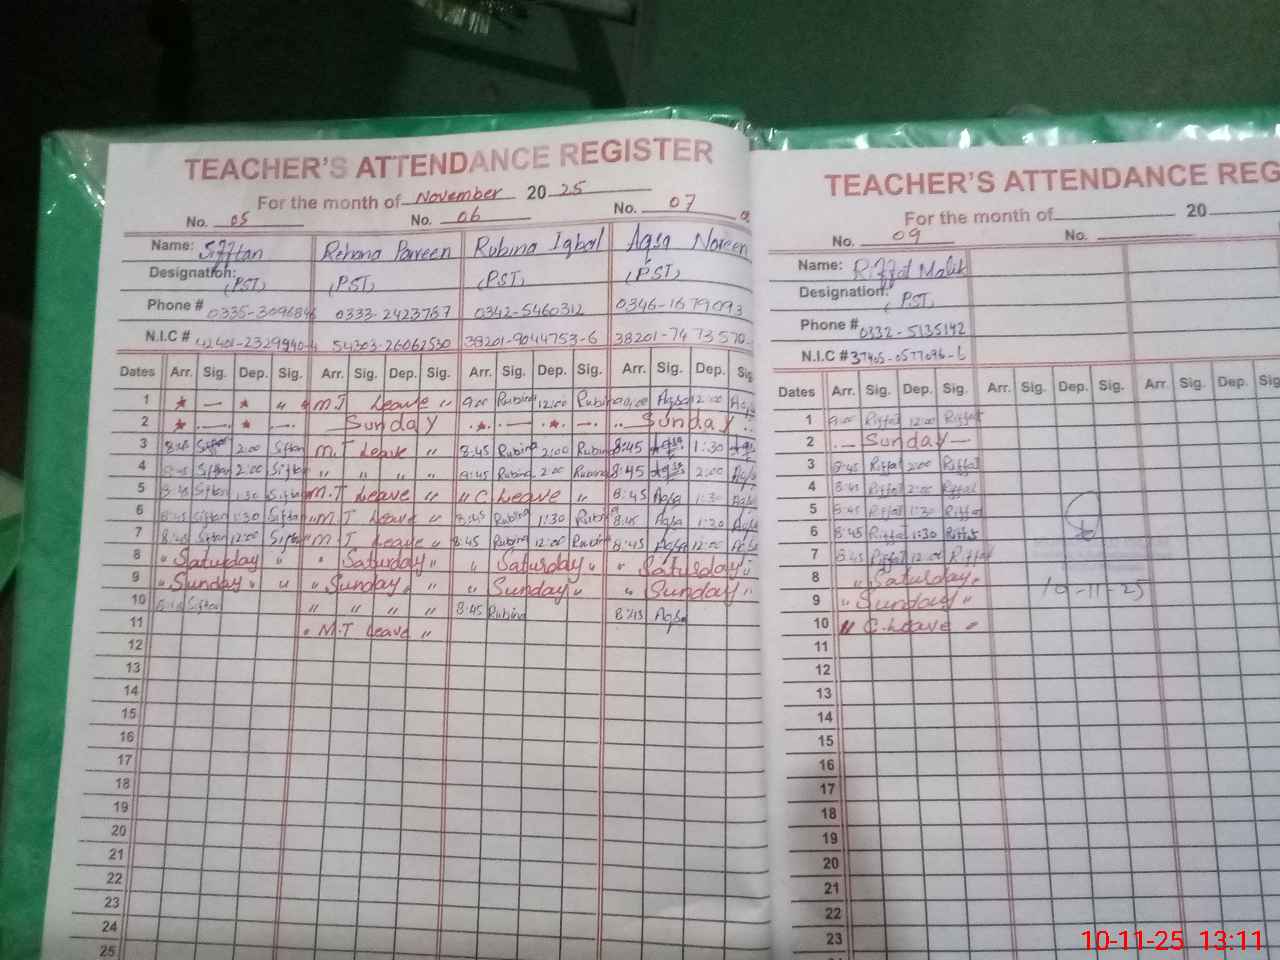 TEACHER'S ATTENDANCE REGISTER
For the month of November 2025
No. 05 No. 06 No. 07
Name: Rehana Parveen Rubina Iqbal Aqsa Noreen
Designation: (PST) (PST) (PST) (PST)
Phone # 0333-2423757 0342-5460312 0346-1679093
N.I.C # 54303-26062530 38201-9044753-6 38201-7473570-
Dates Arr. Sig. Dep. Sig. Arr. Sig. Dep. Sig. Arr. Sig. Dep. Sig. Arr. Sig. Dep. Sig
1 M.T Leave " 9:00 Rubina 12:00 Rubina 9:00 Aqsa 12:00 Aqsa
2 Sunday Sunday
3 8:45 2:00 M.T Leave " 8:45 Rubina 2:00 Rubina 8:45 Aqsa 1:30
4 8:45 2:00 " " " " 8:45 Rubina 2:00 Rubina 8:45 2:00 Aqsa
5 8:45 1:30 M.T Leave " " C.Leave " 8:45 Aqsa 1:30 Aqsa
6 8:45 1:30 M.T Leave " 8:45 Rubina 1:30 Rubina 8:45 Aqsa 1:30 Aqsa
7 8:45 12:00 M.T Leave " 8:45 Rubina 12:00 Rubina 8:45 Aqsa 12:00 Aqsa
8 " Saturday " " Saturday " " Saturday " " Saturday "
9 " Sunday " " " Sunday " " Sunday " " Sunday "
10 " " " " 8:45 Rubina 8:45 Aqsa
11 " M.T Leave "
12
13
14
15
16
17
18
19
20
21
22
23
24
25
TEACHER'S ATTENDANCE REG
For the month of 20
No. 09 No.
Name: Riffat Malik
Designation: (PST)
Phone # 0332-5135142
N.I.C # 37405-0577096-6
Dates Arr. Sig. Dep. Sig. Arr. Sig. Dep. Sig. Arr. Sig. Dep. Sig.
1 9:00 Riffat 12:00 Riffat
2 Sunday
3 8:45 Riffat 2:00 Riffat
4 8:45 Riffat 2:00 Riffat
5 8:45 Riffat 1:30 Riffat
6 8:45 Riffat 1:30 Riffat
7 8:45 Riffat 12:00 Riffat
8 " Saturday "
9 " Sunday " 10-11-25
10 " C.Leave "
11
12
13
14
15
16
17
18
19
20
21
22
23
10-11-25 13:11